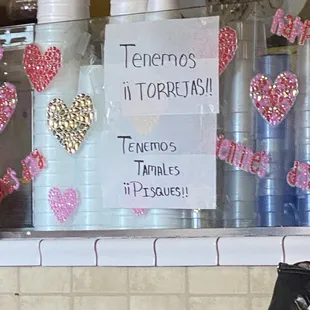 Tenemos
¡¡TORREJAS!!
TENEMOS
TAMALES
¡¡PISQUES!!